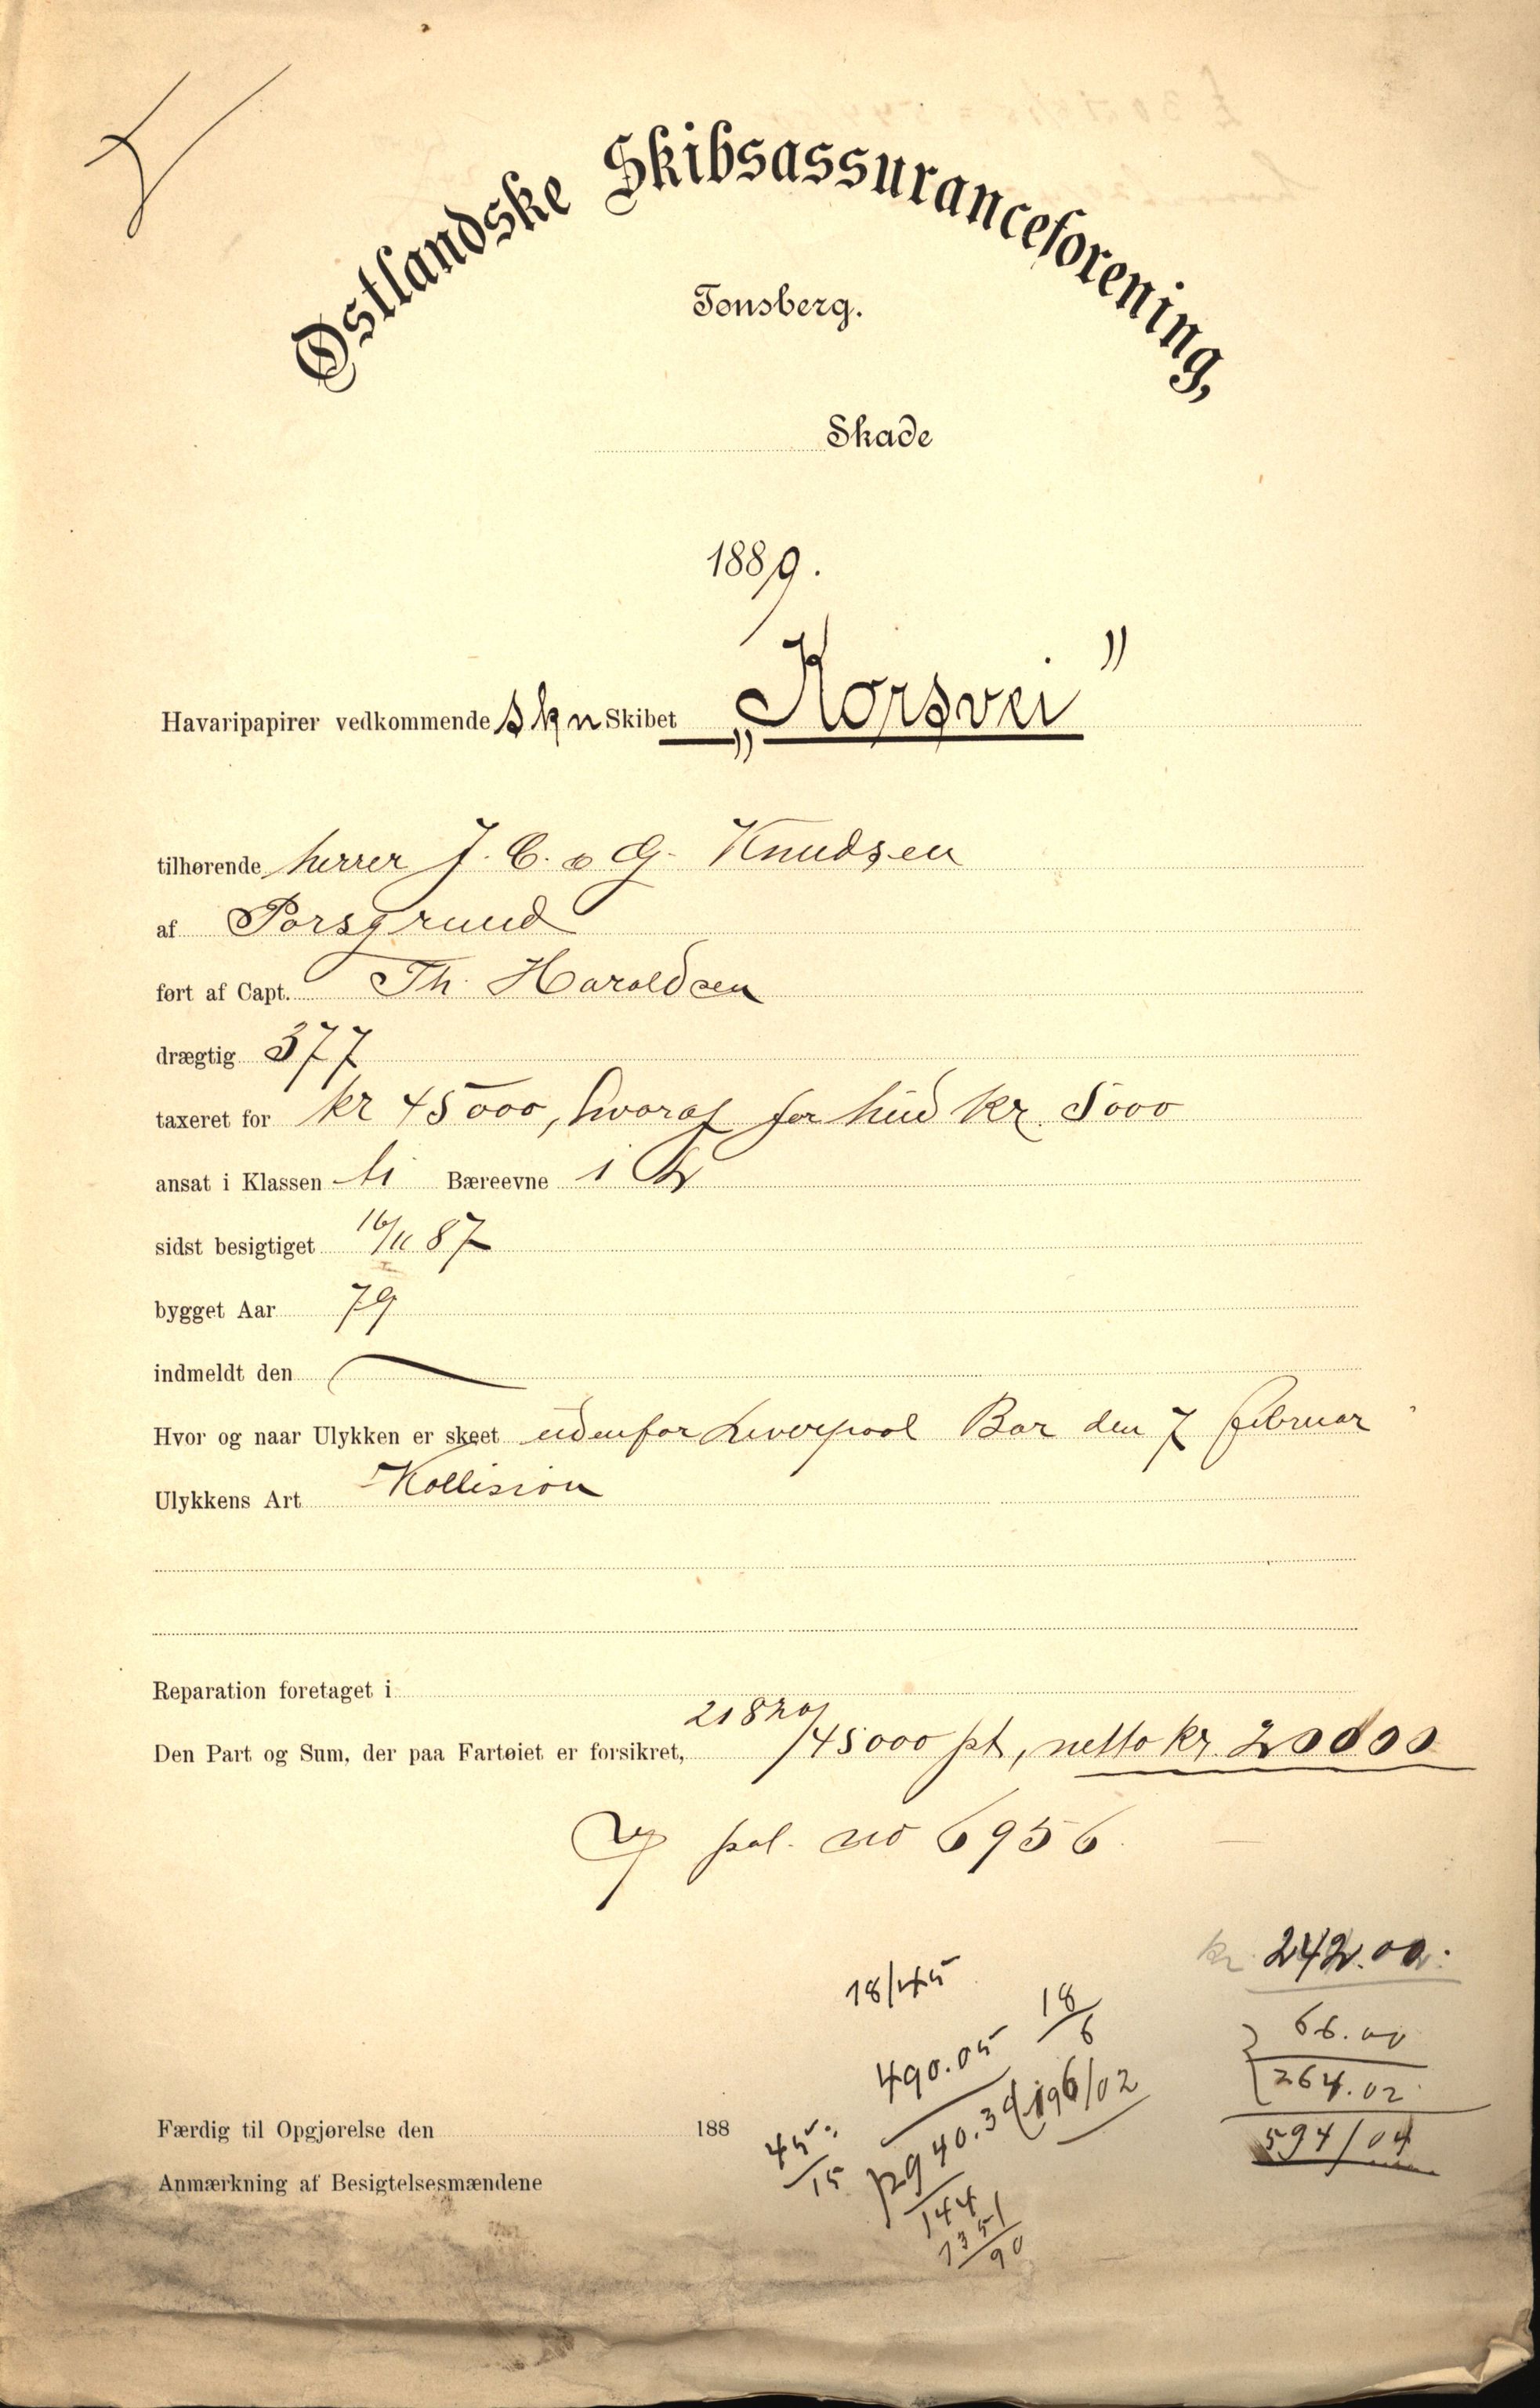 Østlandske Skibsassuranceforening,
Tønsberg.
Skade
1889.
Havaripapirer vedkommende skn Skibet „Korsvei"
tilhørende herrer J. C. & G. Knudsen
af Porsgrund
ført af Capt. Th. Haroldsen
drægtig 377
taxeret for kr 45000, hvoraf for hud kr. 5000
ansat i Klassen A1 Bæreevne 1
sidst besigtiget 16/11 87
bygget Aar 79
indmeldt den
Hvor og naar Ulykken er skeet udenfor Liverpool Bar den 7 februar
Ulykkens Art Kollision
Reparation foretaget i
Den Part og Sum, der paa Fartøiet er forsikret, /45000 pt, netto kr. 20000
pol. no 6956
18/45
kr. 242.00.
18/6
66.00
490.05
264.02
196/02
594/04
45
15
2940.30
144
1351
90
Færdig til Opgjørelse den 188
Anmærkning af Besigtelsesmændene